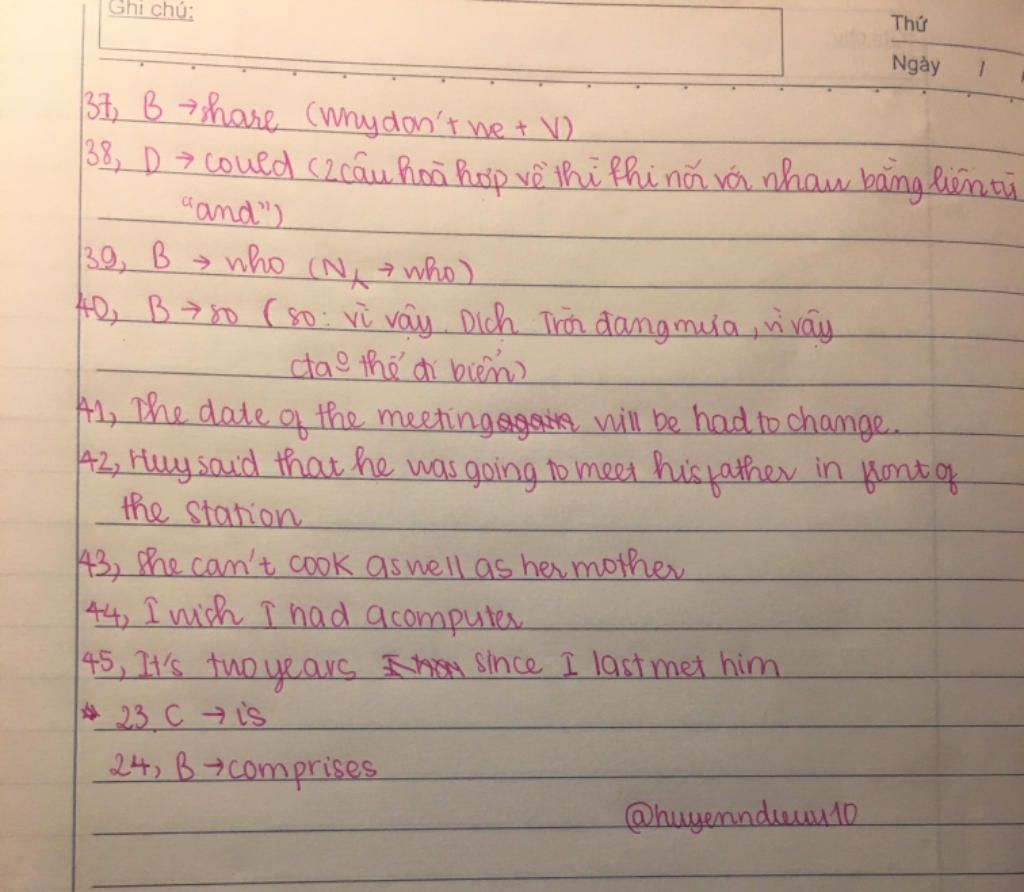 Ghi chú:
Thứ
Ngày /
37, B → share (Why don't we + V)
38, D → could (2 câu hoà hợp về thì khi nối với nhau bằng liên từ
"and")
39, B → who (N → who)
40, B → so (so: vì vậy. Dịch Trời đang mưa, vì vậy
cta º thể đi biển)
41, The date of the meeting will be had to change.
42, Huy said that he was going to meet his father in front of
the station
43, She can't cook as well as her mother
44, I wish I had a computer
45, It's two years since I last met him
* 23, C → is
24, B → comprises
@huyenndieuu10